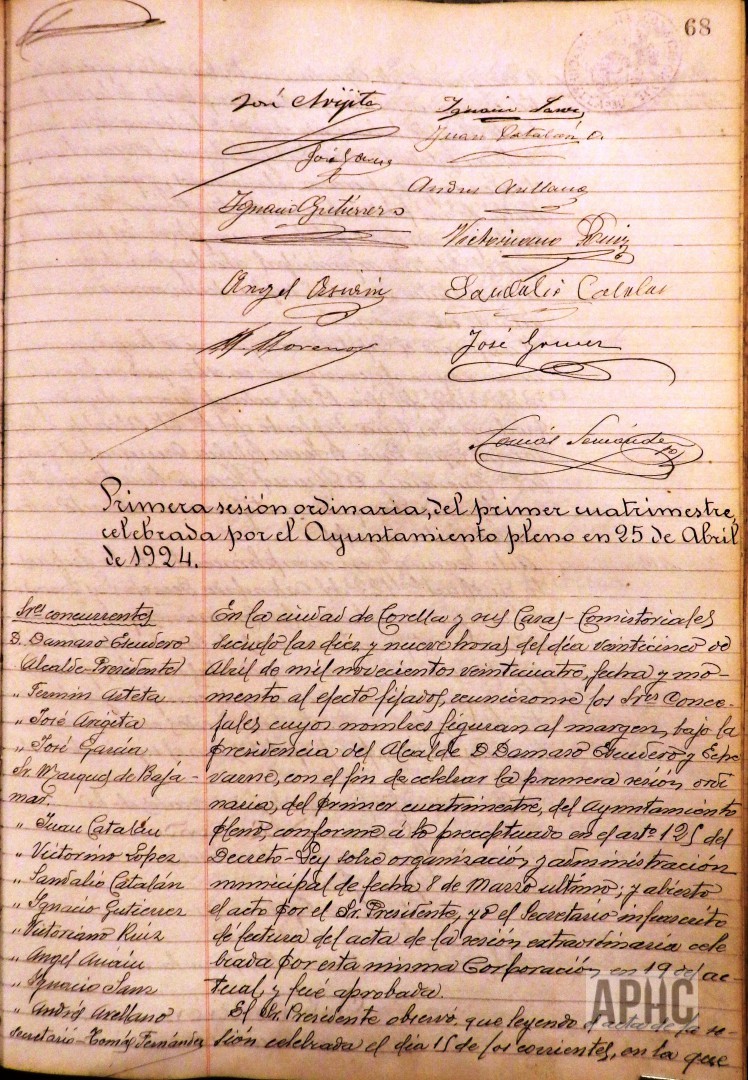 68
José Arigita
Ignacio Sanz
Juan Catalán O.
José García
Andrés Arellano
Ignacio Gutiérrez
Victoriano Ruiz
Angel
Sandalio Catalan
M. Moreno
José Gómez
Tomás Fernández
Primera sesión ordinaria, del primer cuatrimestre,
celebrada por el Ayuntamiento pleno en 25 de Abril
de 1924.
Sres concurrentes
D. Damaso Escudero
Alcalde-Presidente
" Fermin Asteta
" José Arigita
" José Garcia
Sr. Marques de Bajá-
mar.
" Juan Catalan
" Victorino López
" Sandalio Catalán
" Ignacio Gutierrez
" Victoriano Ruiz
" Angel
" Ignacio Sanz
" Andrés Arellano
Secretario-Tomás Fernández
En la ciudad de Corella y sus Casas-Consistoriales
siendo las diez y nueve horas del día veinticinco de
Abril de mil novecientos veinticuatro, fecha y mo-
mento al efecto fijados, reunieronse los Sres Conce-
jales cuyos nombres figuran al margen, bajo la
presidencia del Alcalde D. Damaso Escudero y Eche-
varne, con el fin de celebrar la primera sesión ordi-
naria, del primer cuatrimestre, del Ayuntamiento
pleno, conforme á lo preceptuado en el arto 125 del
Decreto-Ley sobre organización y administración
municipal de fecha 8 de Marzo último; y abierto
el acto por el Sr. Presidente, yo el Secretario infrascrito
dí lectura del acta de la sesión extraordinaria cele-
brada por esta misma Corporación en 19 del ac-
tual, y fué aprobada.
El Sr. Presidente observó, que leyendo el acta de la se-
sión celebrada el día 15 de los corrientes, en la que
APHC